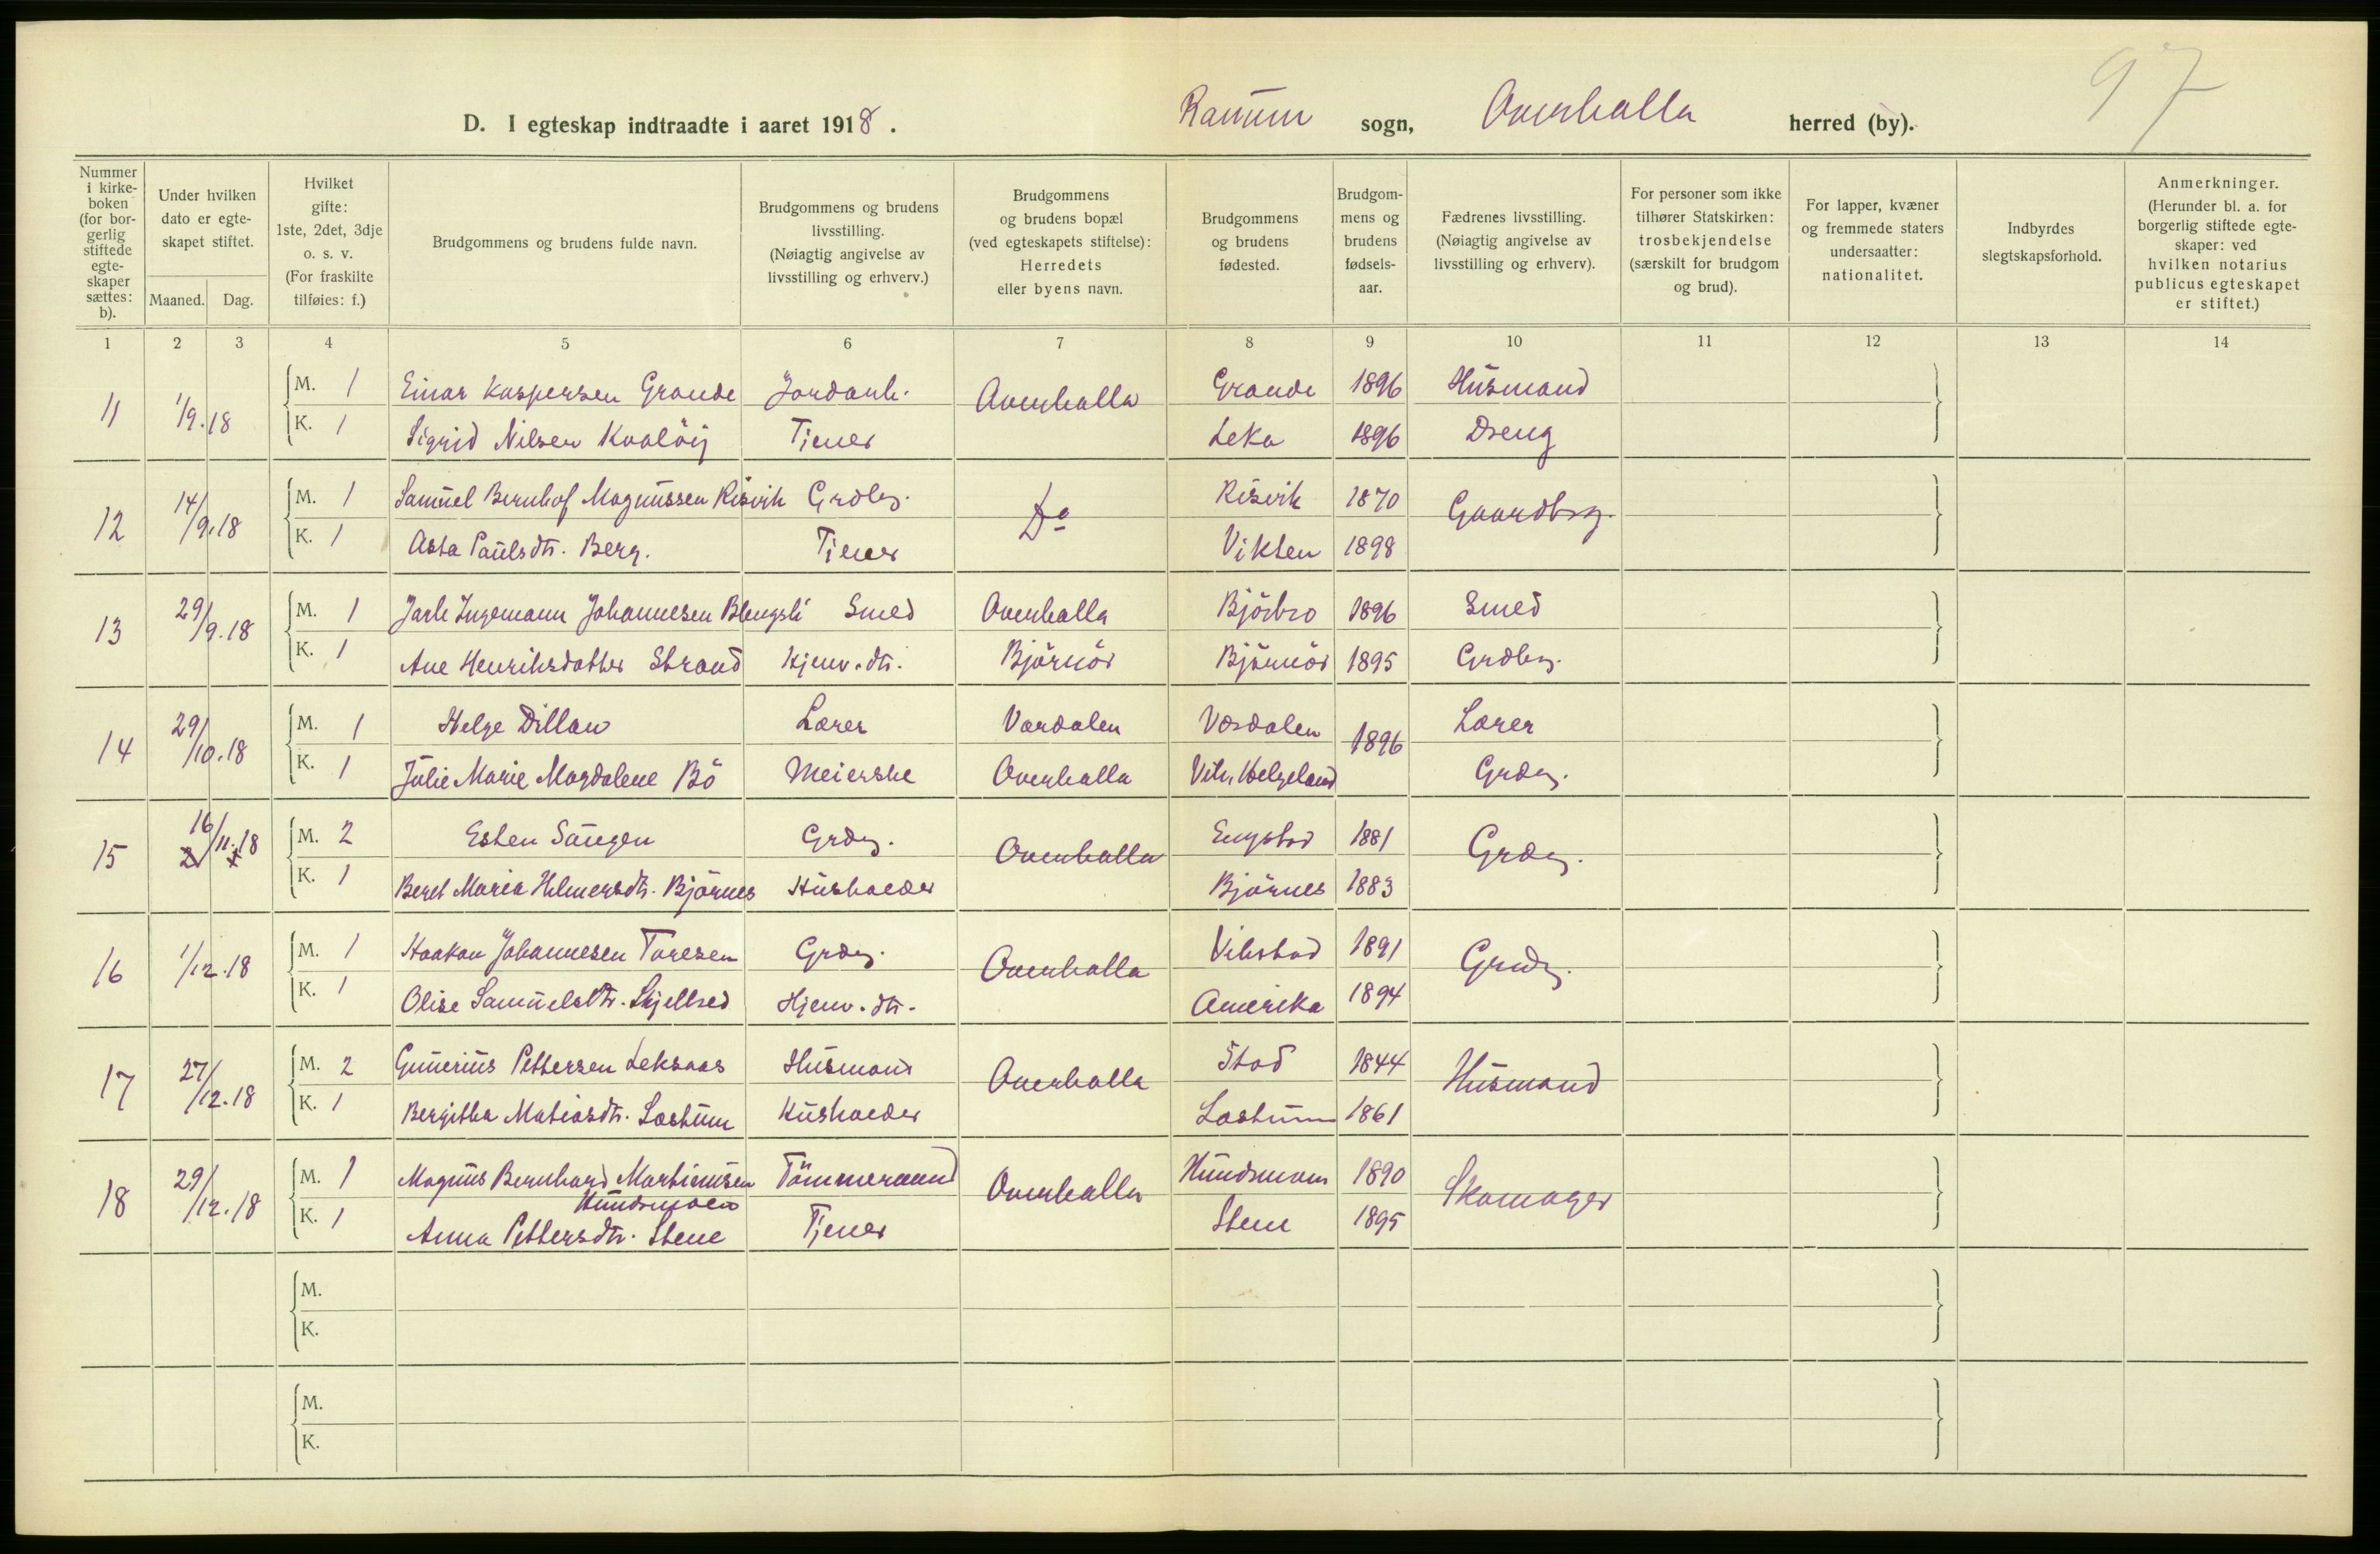 97
D. I egteskap indtraadte i aaret 1918. Ranum sogn, Overhalla herred (by).
Nummer i kirke-boken (for bor-gerlig stiftede egte-skaper sættes: b).
Under hvilken dato er egte-skapet stiftet.
Maaned. Dag.
Hvilket gifte: 1ste, 2det, 3dje o. s. v. (For fraskilte tilføies: f.)
Brudgommens og brudens fulde navn.
Brudgommens og brudens livsstilling. (Nøiagtig angivelse av livsstilling og erhverv.)
Brudgommens og brudens bopæl (ved egteskapets stiftelse): Herredets eller byens navn.
Brudgommens og brudens fødested.
Brudgom-mens og brudens fødsels-aar.
Fædrenes livsstilling. (Nøiagtig angivelse av livsstilling og erhverv).
For personer som ikke tilhører Statskirken: trosbekjendelse (særskilt for brudgom og brud).
For lapper, kvæner og fremmede staters undersaatter: nationalitet.
Indbyrdes slegtskapsforhold.
Anmerkninger. (Herunder bl. a. for borgerlig stiftede egte-skaper: ved hvilken notarius publicus egteskapet er stiftet.)
1 2 3 4 5 6 7 8 9 10 11 12 13 14
11 1/9.18 M. 1 Einar Kaspersen Grande Jordarb. Overhalla Grande 1896 Husmand
K. 1 Sigrid Nilsen Kvaløij Tjener Leka 1896 Dreng
12 14/9.18 M. 1 Samuel Bernhof Magnussen Risvik Grdbr. Do Risvik 1870 Gaardbrg.
K. 1 Asta Paulsdtr. Berg. Tjener Vikten 1898
13 29/9.18 M. 1 Jarle Ingemann Johannesen Blengsli Smed Overhalla Björbro 1896 Smed
K. 1 Ane Henriksdatter Strand Hjemv. dtr. Björnör Björnör 1895 Grdbr.
14 29/10.18 M. 1 Helge Dillan Lærer Værdalen Værdalen 1896 Lærer
K. 1 Julie Marie Magdalene Bö Meierske Overhalla Vik, Helgeland Grdbr.
15 16/11.18 M. 2 Esten Saugen Grdbr. Overhalla Engstad 1881 Grdbr.
K. 1 Beret Maria Helmersdtr. Björnes Husholder Björnes 1883
16 1/12.18 M. 1 Haakon Johannesen Toresen Grdbr. Overhalla Vibstad 1891 Grdbr.
K. 1 Olise Samuelsdtr. Skjelbred Hjemv. dtr. Amerika 1894
17 27/12.18 M. 2 Gunerius Pettersen Leksaas Husmand Overhalla Stod 1844 Husmand
K. 1 Bergitha Matiasdtr. Lastum Husholder Lastum 1861
18 29/12.18 M. 1 Magnus Bernhard Martinusen Hundsmoen Tömmermand Overhalla Hundsmoen 1890 Skomager
K. 1 Anna Pettersdtr. Stene Tjener Stene 1895
M.
K.
M.
K.